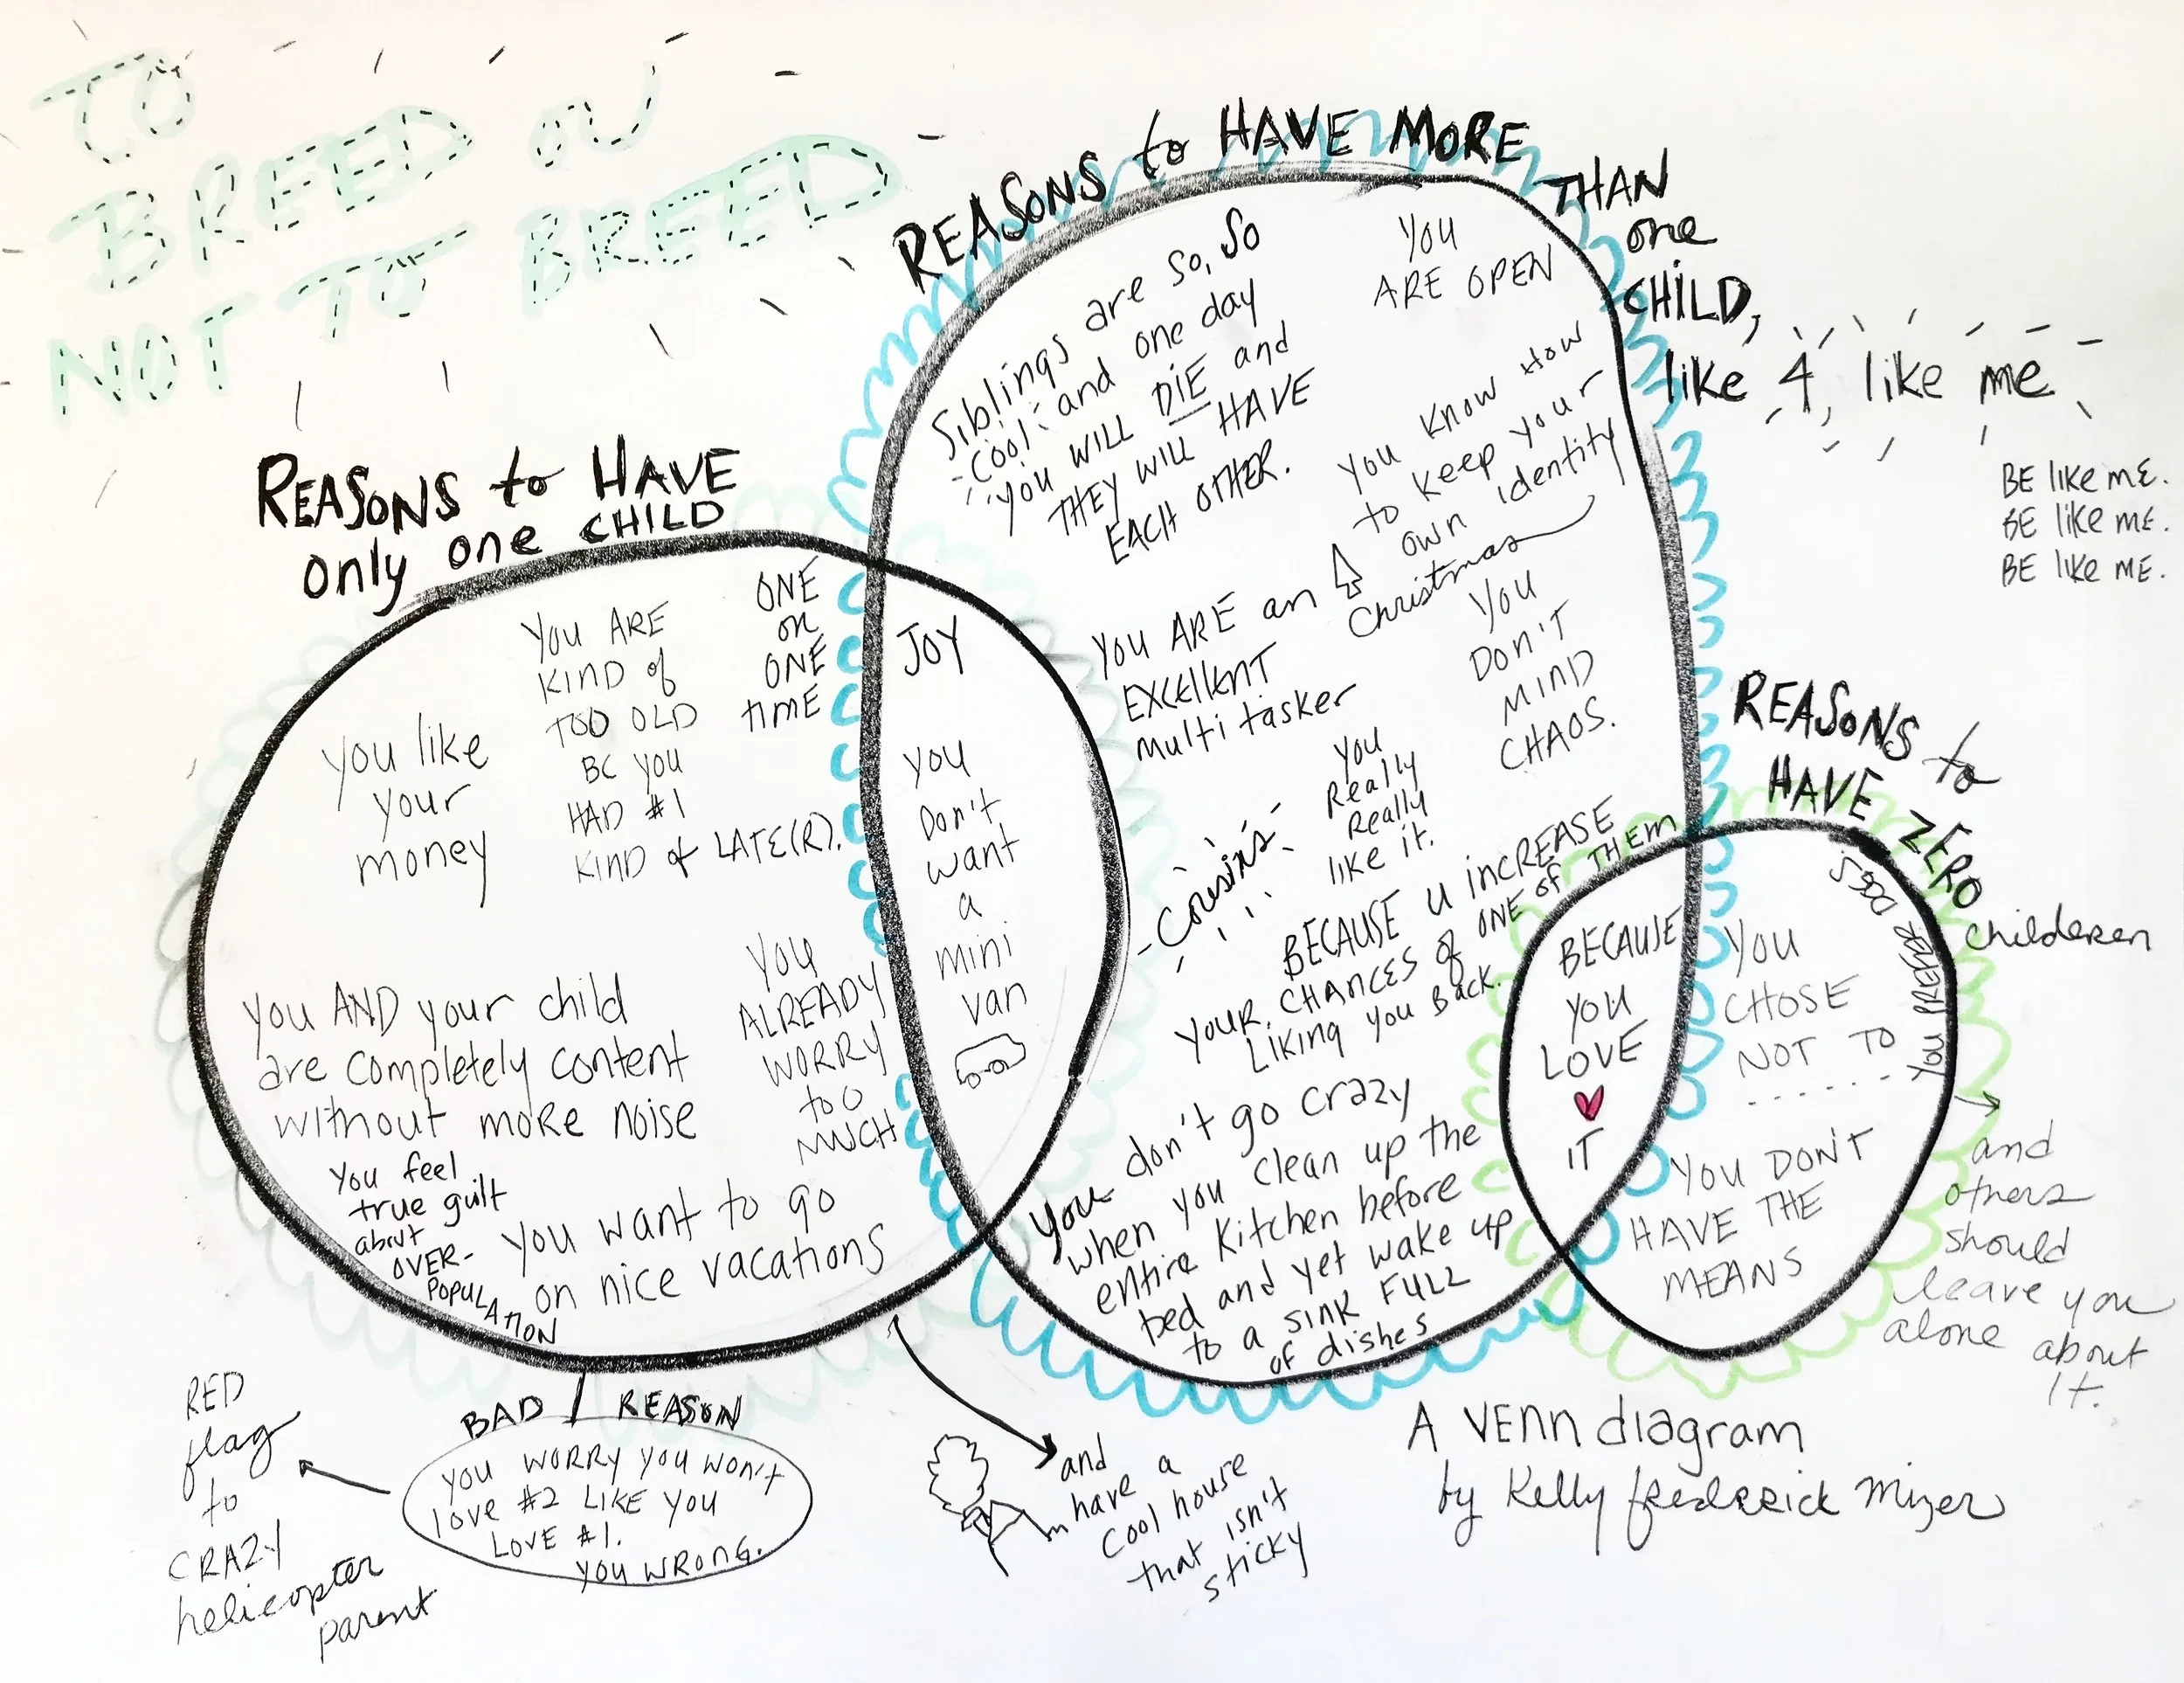 TO
BREED OR
NOT TO BREED
REASONS to HAVE MORE
THAN
one
CHILD,
like 4, like me
BE like ME.
BE like ME.
BE like ME.
REASONS to HAVE
only one CHILD
YOU ARE
KIND of
TOO OLD
BC YOU
HAD #1
KIND of LATE(R).
ONE
on
ONE
TIME
you like
your
money
you AND your child
are completely content
without more noise
YOU
ALREADY
WORRY
too
MUCH
You feel
true guilt
about
OVER-
POPULATION
you want to go
on nice vacations
JOY
you
Don't
want
a
mini
van
Siblings are so, so
cool and one day
you WILL DIE and
THEY WILL HAVE
EACH OTHER.
YOU
ARE OPEN
you know How
to keep your
own identity
Christmas
YOU ARE an
EXCELLENT
multi tasker
YOU
DON'T
MIND
CHAOS.
you
Really
Really
like it.
-Cousins-
BECAUSE U INCREASE
YOUR CHANCES of ONE of THEM
LIKING YOU Back.
you don't go crazy
when you clean up the
entire kitchen before
bed and yet wake up
to a sink FULL
of dishes
REASONS to
HAVE ZERO
childeren
BECAUSE
YOU
LOVE
IT
YOU
CHOSE
NOT TO
YOU DON'T
HAVE THE
MEANS
YOU PREFER DOGS.
and
others
should
leave you
alone about
it.
BAD REASON
you WORRY you won't
love #2 LIKE you
LOVE #1.
YOU WRONG.
RED
flag
to
CRAZY
helicopter
parent
and
have a
cool house
that isn't
sticky
A VENN diagram
by Kelly frederick mizer